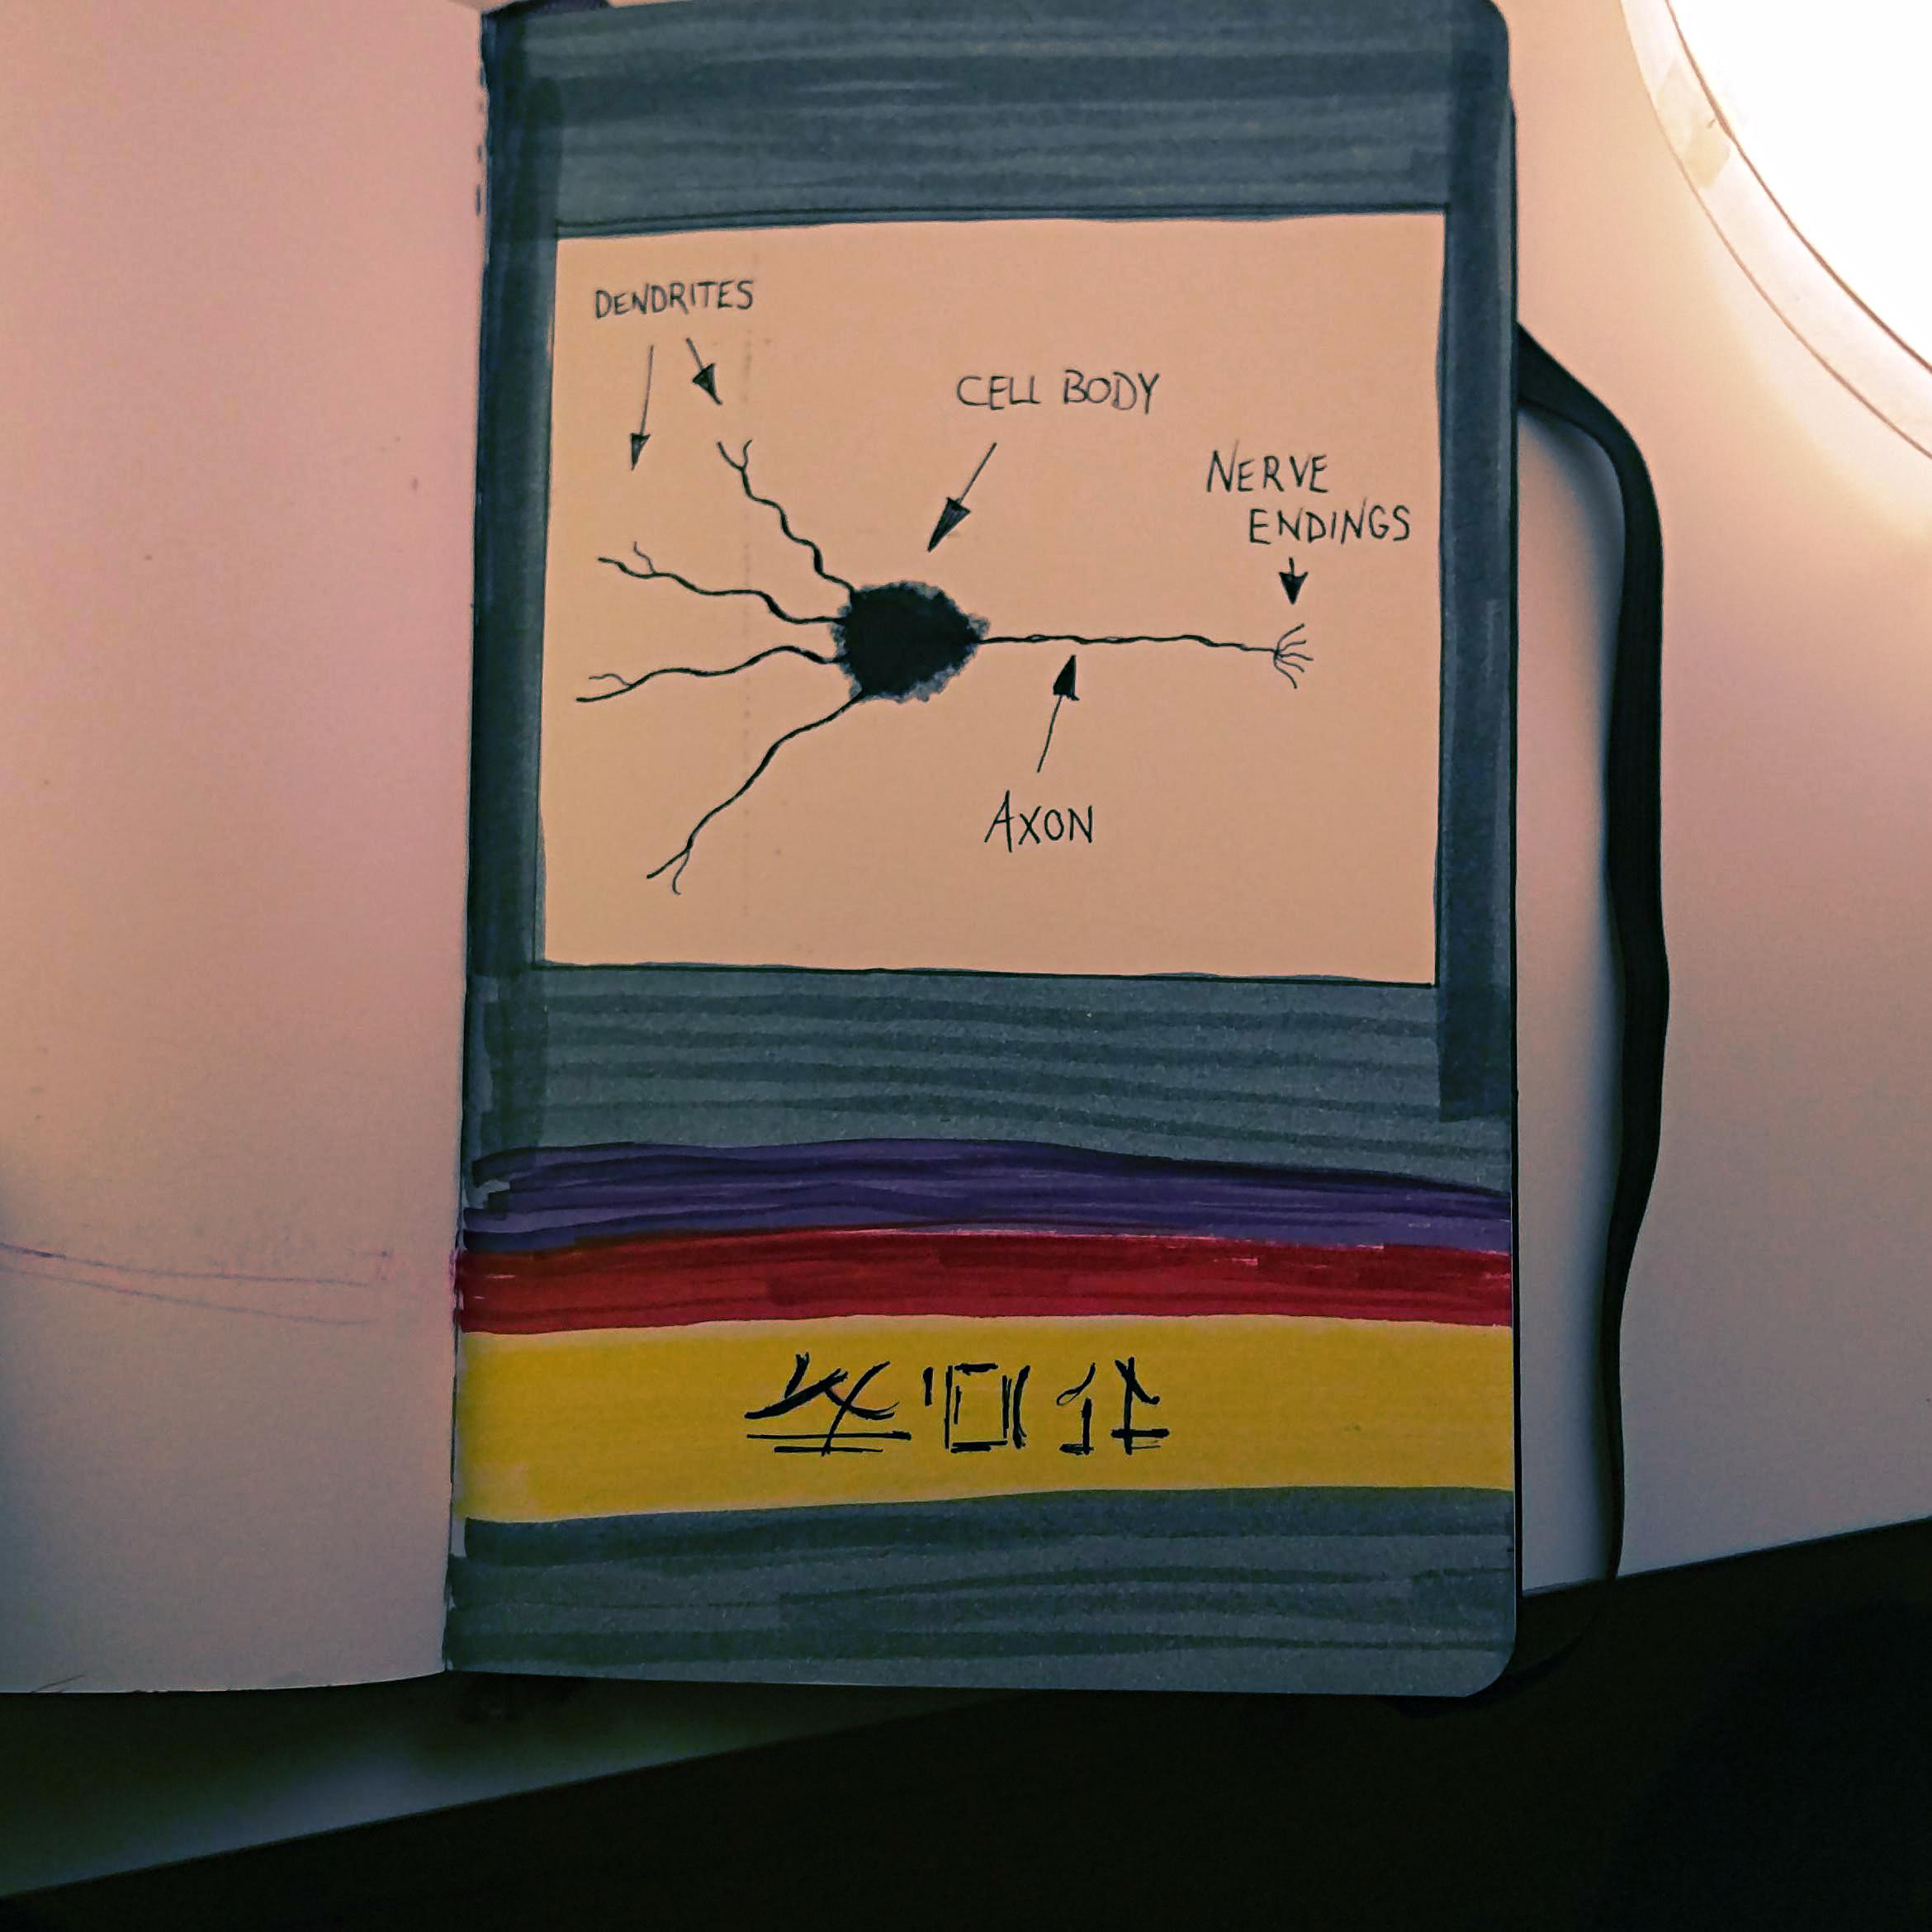 DENDRITES
CELL BODY
NERVE
ENDINGS
AXON